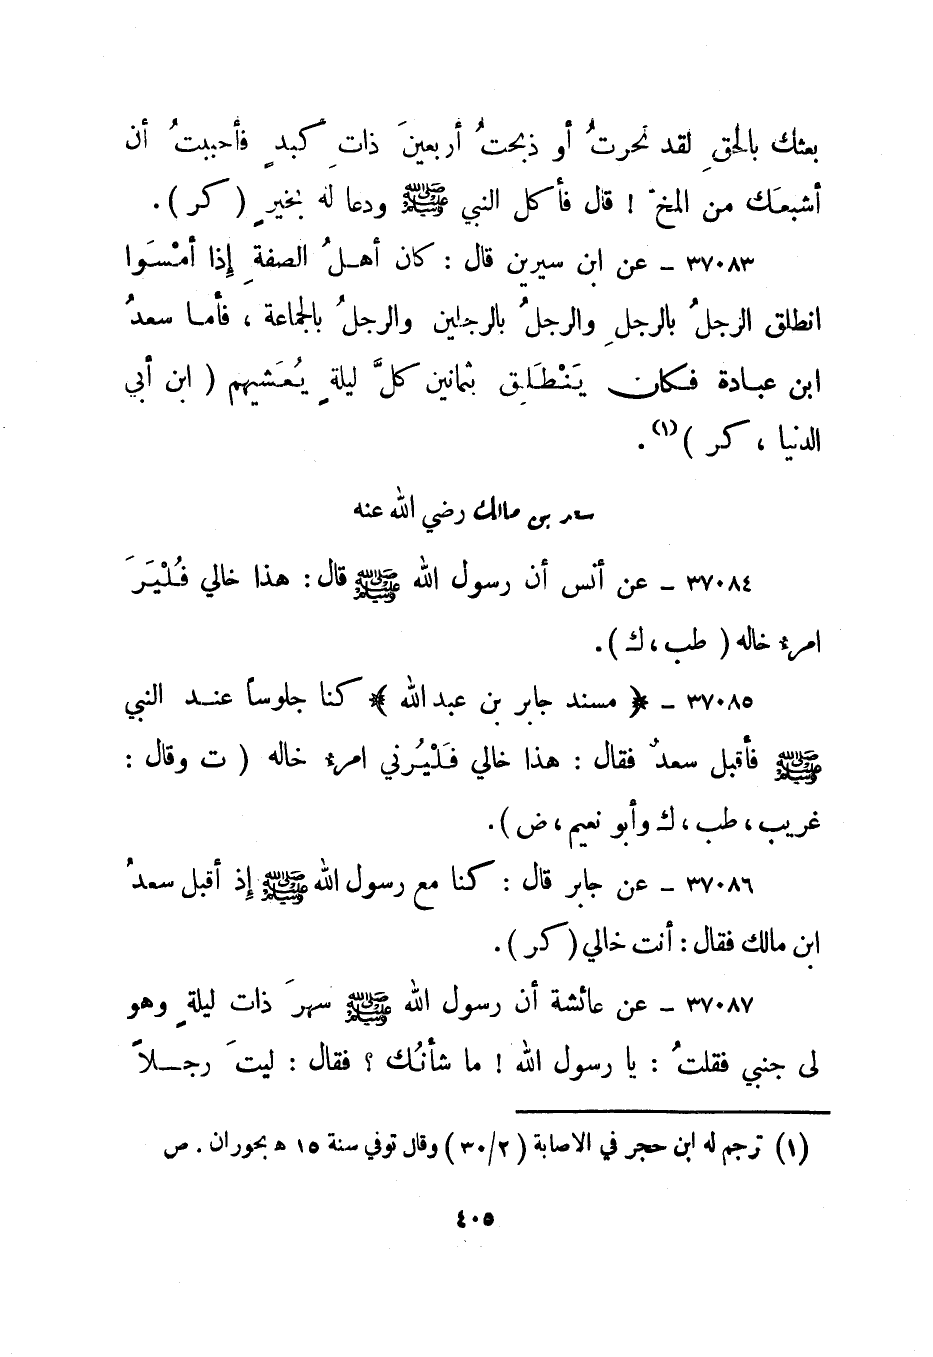 بعثك بالحقِ لقد نحرتُ أو ذبحتُ أربعينَ ذاتِ كبدٍ فأحببتُ أن
أشبعَك من المخ ! قال فأكل النبي ﷺ ودعا له بخيرٍ ( كر ) .
٣٧٠٨٣ – عن ابن سيرين قال : كان أهلُ الصفةِ إذا أمْسَوا
انطلق الرجلُ بالرجلِ والرجلُ بالرجلين والرجلُ بالجماعة ، فأما سعدُ
ابن عبادة فكان يَنْطَلِق بثمانين كلَّ ليلةٍ يُعَشيهم ( ابن أبي
الدنيا ، كر )(١) .
سعد بن مالك رضي الله عنه
٣٧٠٨٤ – عن أنس أن رسول الله ﷺ قال : هذا خالي فَلْيُرَ
امرء خاله ( طب ، ك ) .
٣٧٠٨٥ – ﴿ مسند جابر بن عبد الله ﴾ كنا جلوساً عند النبي
ﷺ فأقبل سعدٌ فقال : هذا خالي فَلْيُرني امرء خاله ( ت وقال :
غريب ، طب ، ك وأبو نعيم ، ض ) .
٣٧٠٨٦ – عن جابر قال : كنا مع رسول الله ﷺ إذ أقبل سعدُ
ابن مالك فقال : أنت خالي ( كر ) .
٣٧٠٨٧ – عن عائشة أن رسول الله ﷺ سهرَ ذات ليلةٍ وهو
لى جنبي فقلتُ : يا رسول الله ! ما شأنُك ؟ فقال : ليتَ رجلاً
(١) ترجم له ابن حجر في الاصابة ( ٢/٣٠ ) وقال توفي سنة ١٥ ه بحوران . ص
٤٠٥